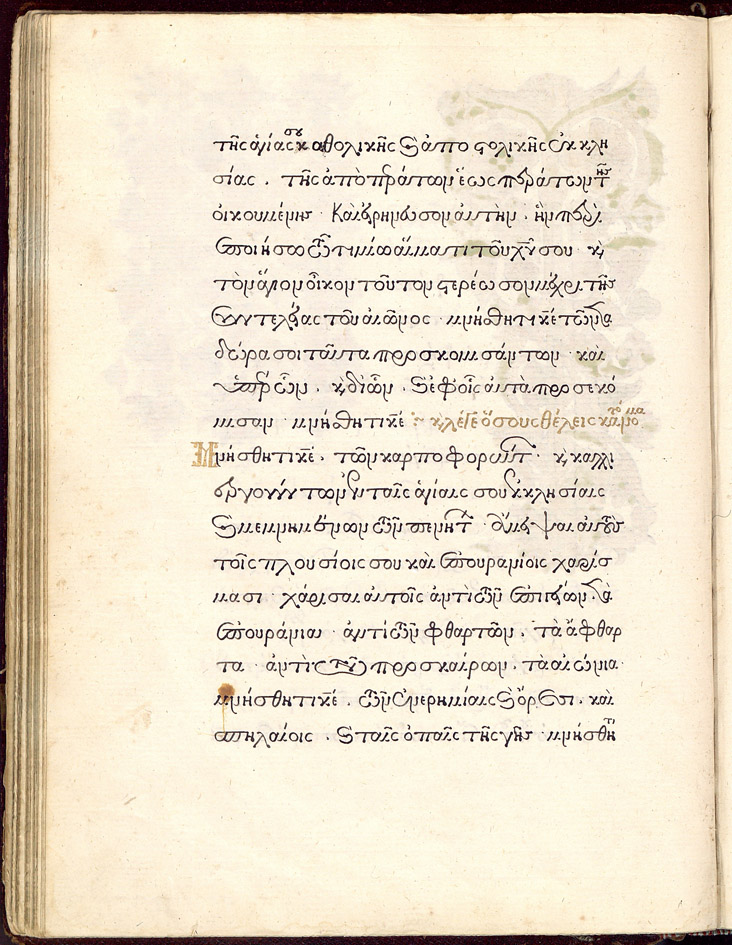 τῆς ἁγίας σου καθολικῆς καὶ ἀποστολικῆς ἐκκλη
σίας. τῆς ἀπὸ περάτων ἕως περάτων τῆς
οἰκουμένης. Καὶ εἰρήνευσον αὐτήν. ἣν περι
εποιήσω τῶ τιμίω αἵματι τοῦ χ̅υ̅ σου. κ̀
τὸν ἅγιον οἶκον τοῦτον στερέωσον μέχρι τῆς
συντελείας τοῦ αἰῶνος. μνήσθητι κ̅ε̅ τῶν τὰ
δῶρα σοι ταῦτα προσκομισάντων. καὶ
ὑπὲρ ὧν. κ̀ δι' ὧν. καὶ ἐφ' οἷς αὐτὰ προσεκό
μισαν. μνήσθητι κ̅ε̅
Μνήσθητι κ̅ε̅. τῶν καρποφορούντων. κ̀ καλλι
εργούντων ἐν ταῖς ἁγίαις σου ἐκκλησίαις
καὶ μεμνημένων τῶν πενήτων. ἄμειψαι αὐτοὺς
τοῖς πλουσίοις σου καὶ ἐπουρανίοις χαρίσ
μασι. χάρισαι αὐτοῖς ἀντὶ τῶν ἐπιγείων. τὰ
ἐπουράνια. ἀντὶ τῶν φθαρτῶν. τὰ ἄφθαρ
τα. ἀντὶ τῶν προσκαίρων. τὰ αἰώνια.
μνήσθητι κ̅ε̅. τῶν ἐν ἐρημίαις καὶ ὄρεσι. καὶ
σπηλαίοις. καὶ ταῖς ὀπαῖς τῆς γῆς. μνήσθητι